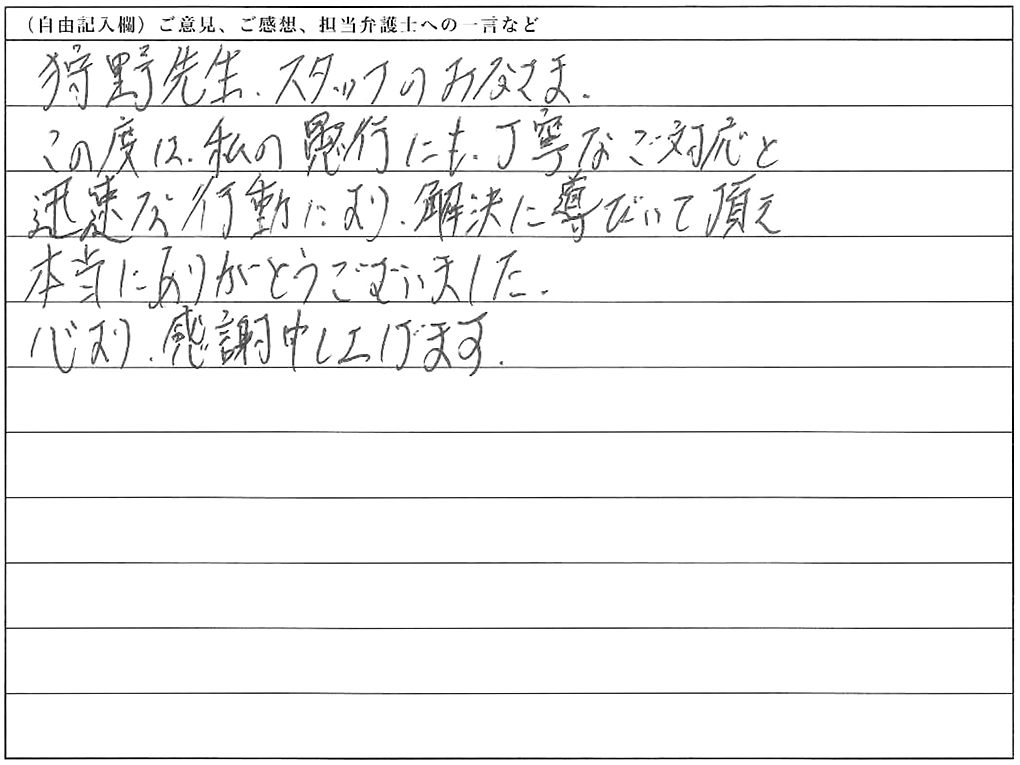 （自由記入欄）ご意見、ご感想、担当弁護士への一言など
狩野先生、スタッフのみなさま、
この度は、私の愚行にも、丁寧なご対応と
迅速な行動により、解決に導びいて頂え
本当にありがとうございました。
心より、感謝申し上げます。